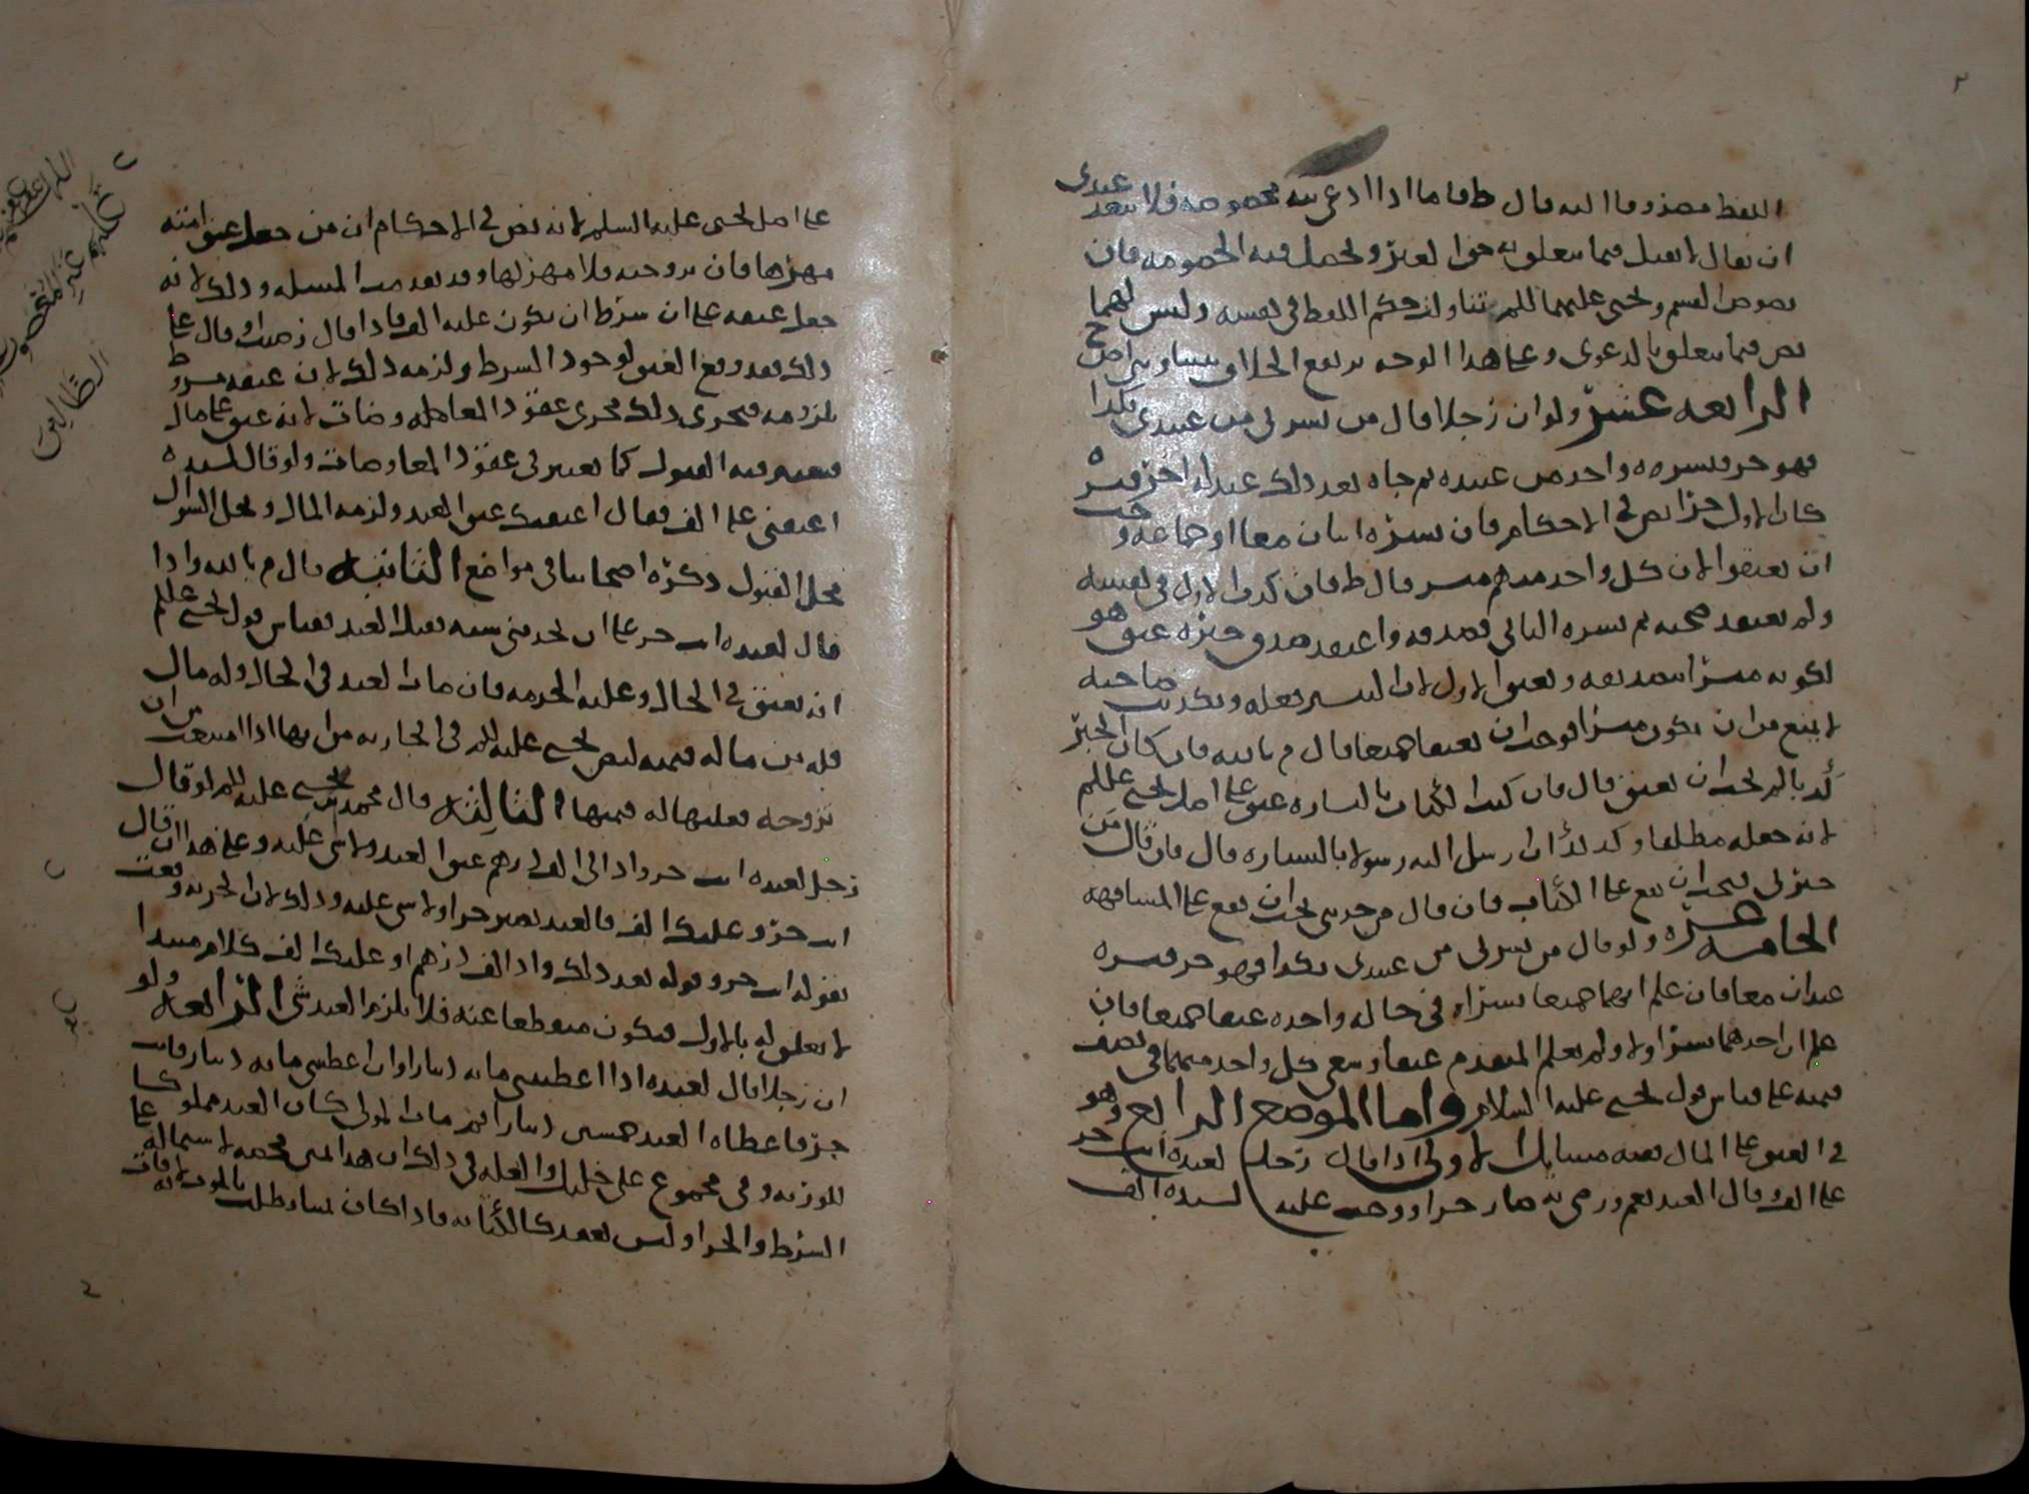 اللفظ مصروفا اليه قال ط فاما اذا ادعى نيه مخصوصه فلا يبعد عندى
ان يقال لا يقبل فيما يتعلق به حق الغير وتحصل فيه الخصومه فان
نصوص القسم ويحيى عليهما السلم تناولت حكم اللفظ فى نفسه وليس لهما
نص فيما يتعلق بالدعوى وعلى هذا الوجه يرتفع الخلاف
الرابعه عشر ولو ان رجلا قال من بشرنى من عبيدى بكذا
فهو حر فبشره واحد من عبيده ثم جاه بعد ذلك عبد له اخر فبشره
كان الاول حرا نص فى الاحكام فان بشره اثنان معا او جماعه وجب
ان يعتقوا لان كل واحد منهم مبشر قال ط فان كذب الاول فى نفسه
ولم يعتقد صحته ثم بشره الثانى فصدقه واعتقد صدق خبره عتق هو
لكونه مبشرا بصدقه ويعتق الاول لان التبشير فعله وتكذيب صاحبه
لا يمنع من ان يكون مبشرا فوجب ان يعتقا جميعا قال م بالله فان كان الخبر
كذبا لم يجب ان يعتق قال فان كتب الكتاب بالبشاره عتق على اصل يحيى عليه السلم
لانه جعله مطلقا وكذلك ان ارسل اليه رسولا بالبشاره قال فان قال من
خبرنى فيجب ان يقع على الكتاب فان قال من حدثنى يجب ان يقع على المشافهه
الخامسه عشره ولو قال من بشرنى من عبيدى بكذا فهو حر فبشره
عبدان معا فان علم انهما جميعا بشراه فى حاله واحده عتقا جميعا فان
علم ان احدهما بشر اولا ولم يعلم المتقدم عتقا وسعى كل واحد منهما فى نصف
قيمته على قياس قول يحيى عليه السلام واما الموضع الرابع وهو
فى العتق على المال ففيه مسايل الاولى اذا قال رجل لعبده انت حر
على الف وقال العبد نعم ورضى به صار حرا ووجب عليه لسيده الف
على اصل يحيى عليه السلم لانه نص فى الاحكام ان من جعل عتق امته
مهرها فان تزوجته فلا مهر لها وقد تقدمت المسله وذلك لانه
جعل عتقه على ان شرط ان يكون عليه الف فاذا قال رضيت وقال على
ذلك فقد وقع العتق لوجود الشرط ولزمه ذلك لان عتقه مشروط
بلزومه فيجرى ذلك مجرى عقود المعاوضات لانه عتق على مال
فيعتبر فيه القبول كما يعتبر فى عقود المعاوضات ولو قال لسيده
اعتقنى على الف فقال اعتقتك عتق العبد ولزمه المال ويحل السوال
محل القبول ذكره اصحابنا فى مواضع الثانيه قال م بالله واذا
قال لعبده انت حر على ان تخدمنى سنه فقبل العبد فقياس قول يحيى عليه السلم
انه يعتق فى الحال وعليه الخدمه فان مات العبد فى الحال وله مال
فله من ماله قيمته لنص يحيى عليه السلم فى الجاريه من انها اذا امتنعت من ان
تزوجه فعليها له قيمتها الثالثه قال محمد بن يحيى عليه السلم لو قال
رجل لعبده انت حر واد الى الف درهم عتق العبد ولا شى عليه وعلى هذا ان قال
انت حر وعليك الف فالعبد يصير حرا ولا شى عليه وذلك لان الحريه وقعت
بقوله انت حر وقوله بعد ذلك واد الف درهم او عليك الف كلام مبتدا
لا تعلق له بالاول فيكون منقطعا عنه فلا يلزم العبد شى الرابعه ولو
ان رجلا قال لعبده اذا اعطيتنى مايه دينار او ان اعطيتنى مايه دينار فانت
حر فاعطاه العبد خمسين دينارا ثم مات المولى كان العبد مملوكا
للورثه وفى مجموع على خليل والعله فى ذلك ان هذا يمين محضه لاشتماله على
الشرط والجزا وليس بعقد كالكتابه فاذا كان يمينا بطلت بالموت لانه فات